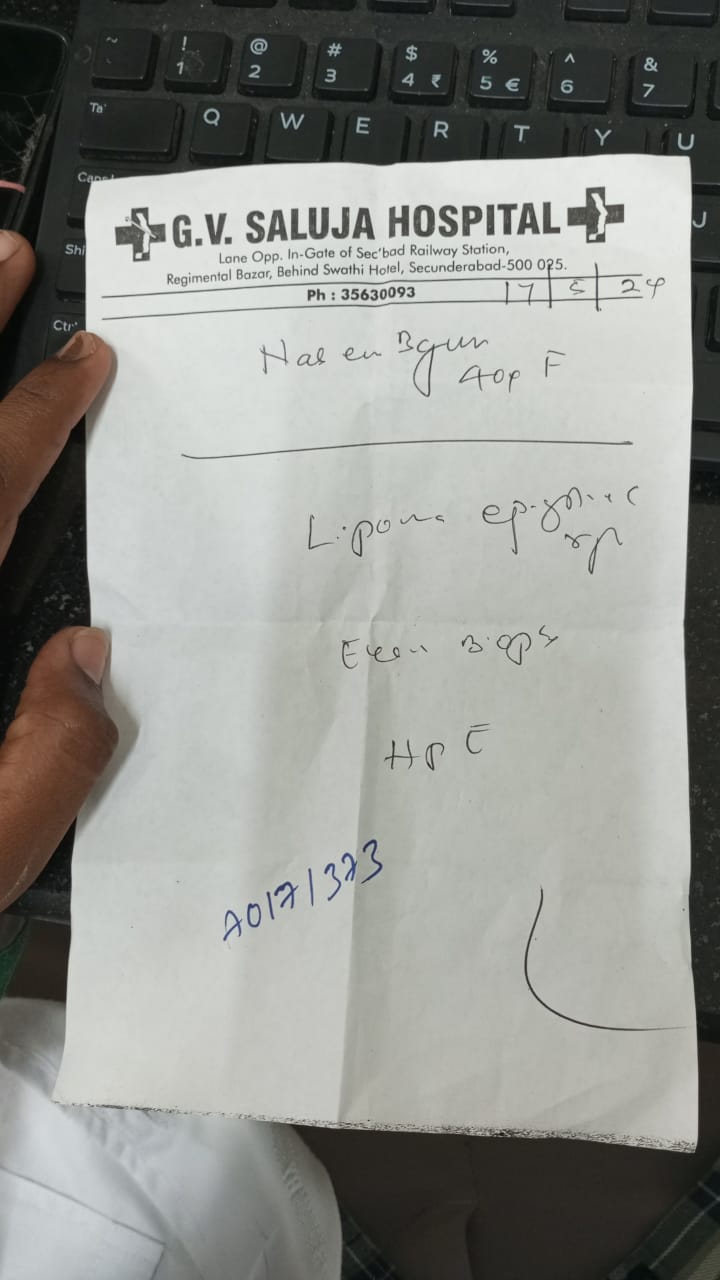 ~
! @ # $ % ^ &
1 2 3 4 ₹ 5 € 6 7
Ta
Q W E R T Y U
Caps
J
Shi
Ctr
G.V. SALUJA HOSPITAL
Lane Opp. In-Gate of Sec'bad Railway Station,
Regimental Bazar, Behind Swathi Hotel, Secunderabad-500 025.
Ph : 35630093
17 | 5 | 24
Begum
F
Lipoma epigastric
Biops
HPE
A0171373